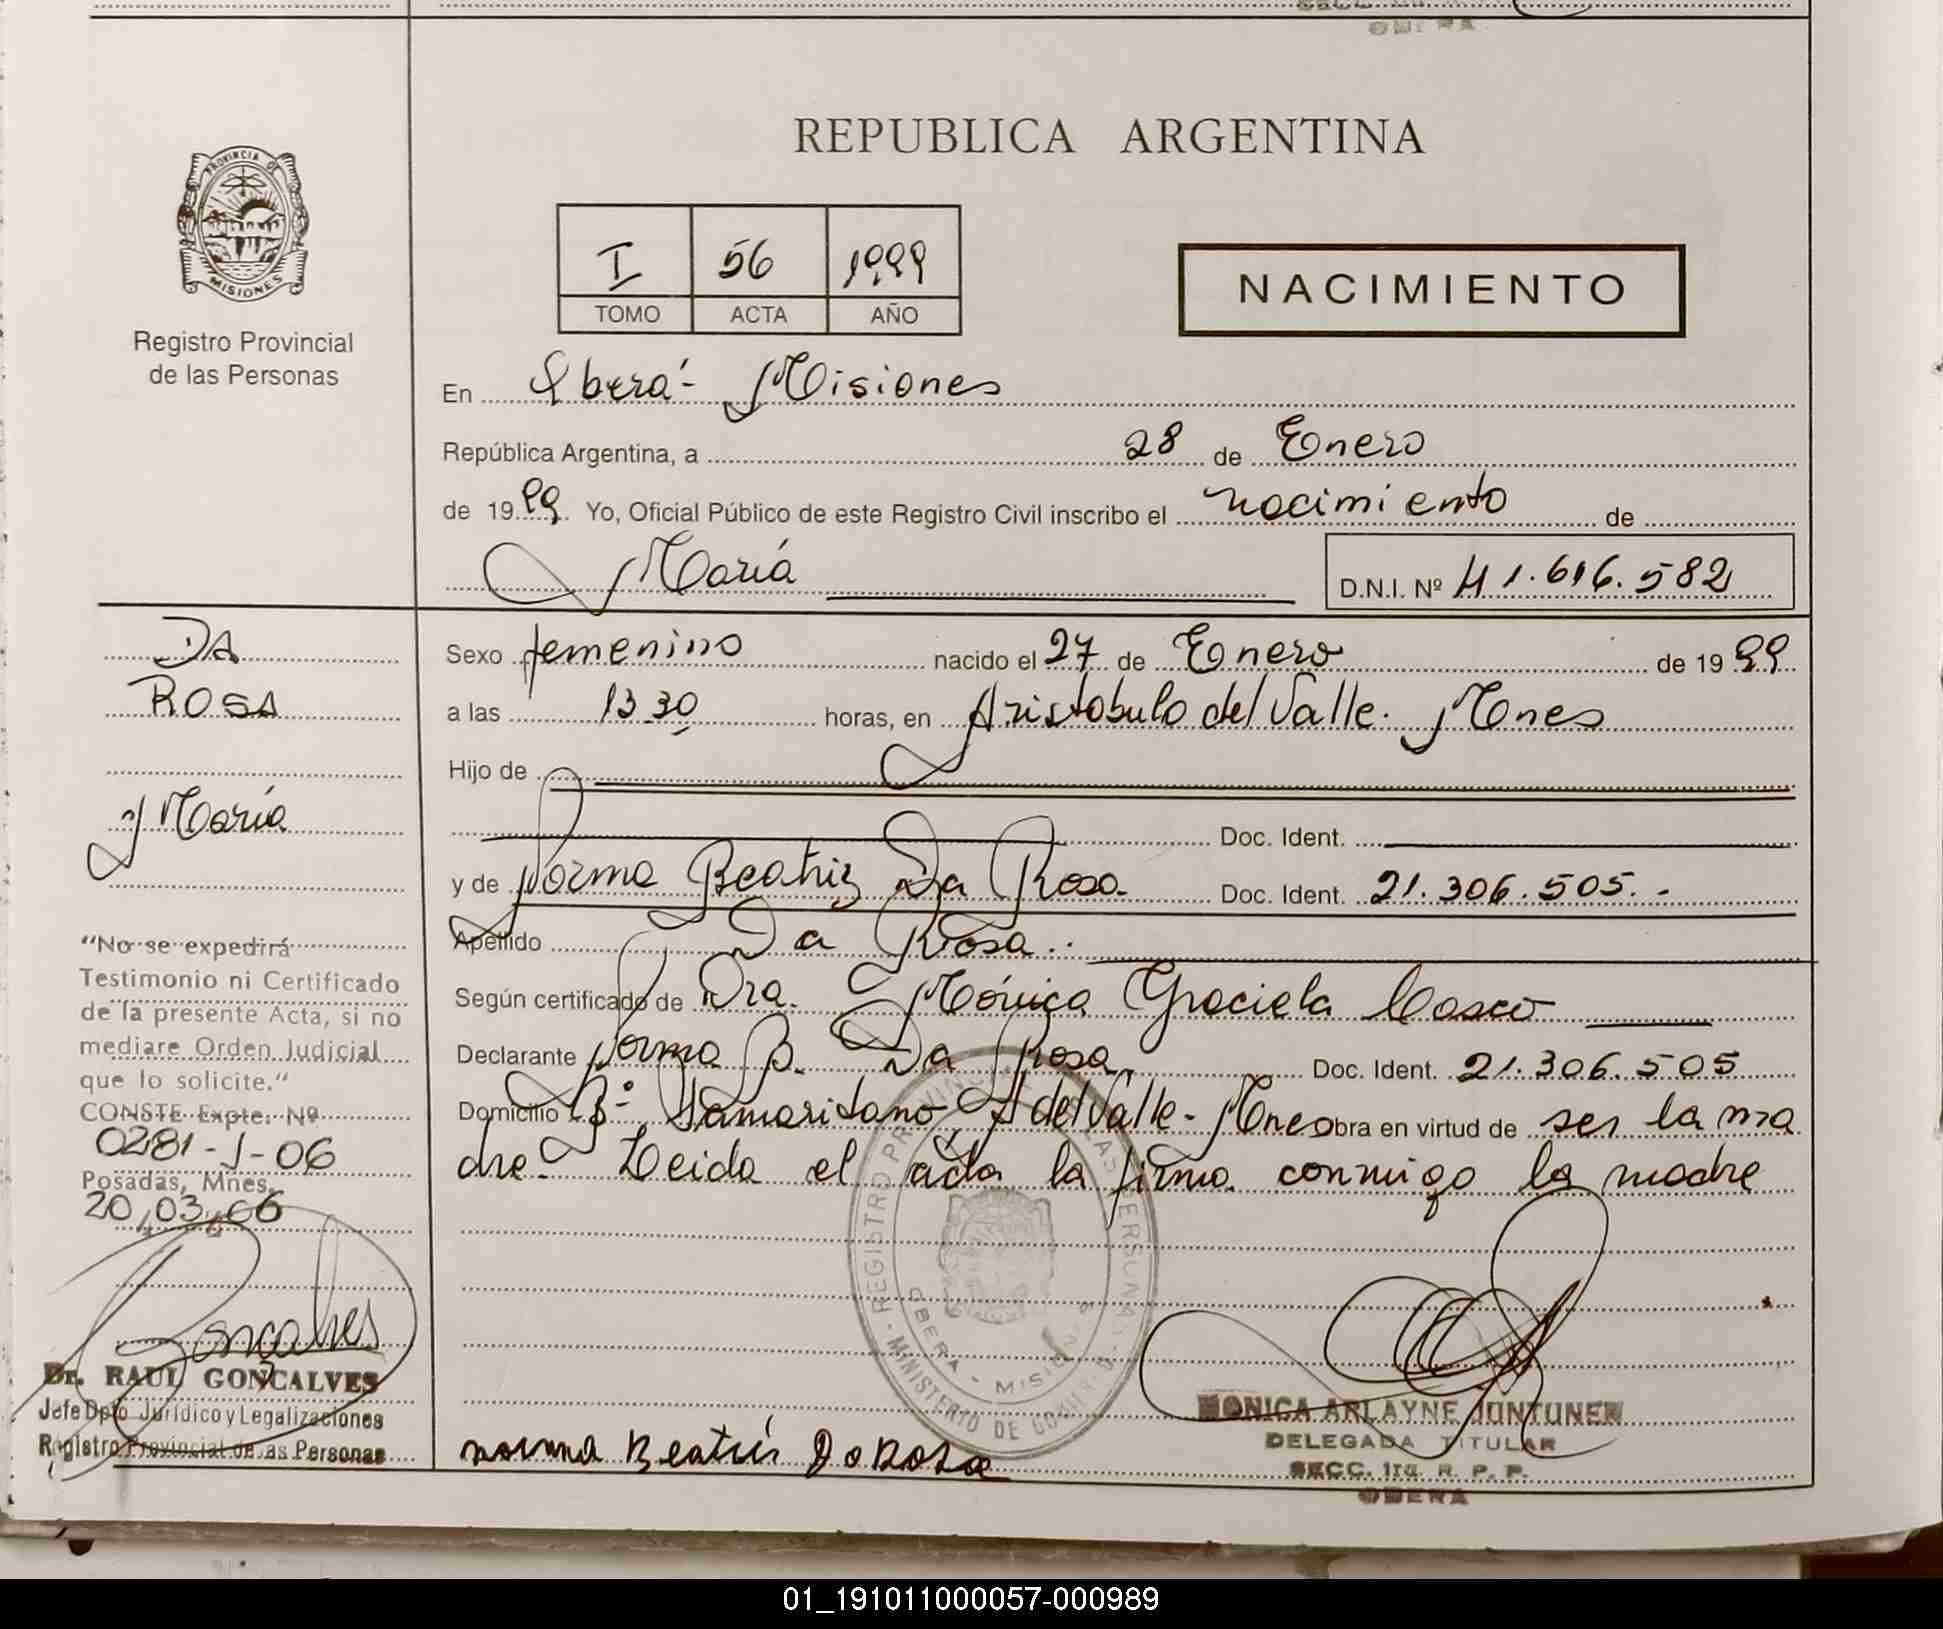 REPUBLICA ARGENTINA
PROVINCIA DE
MISIONES
Registro Provincial
de las Personas
I 56 1999
TOMO ACTA AÑO
NACIMIENTO
En Oberá - Misiones
República Argentina, a 28 de Enero
de 1999 Yo, Oficial Público de este Registro Civil inscribo el nacimiento de
María D.N.I. Nº 41.616.582
DA
ROSA
María
Sexo femenino nacido el 27 de Enero de 1999
a las 13 30 horas, en Aristobulo del Valle. Mnes
Hijo de
Doc. Ident.
y de Norma Beatriz Da Rosa Doc. Ident. 21.306.505.-
Apellido Da Rosa.
Según certificado de Dra. Mónica Graciela Casco
Declarante Norma B. Da Rosa Doc. Ident. 21.306.505
Domicilio Bº Samaritano, A del Valle - Mnes obra en virtud de ser la ma
dre - Leida el acta la firma conmigo la madre
"No se expedirá
Testimonio ni Certificado
de la presente Acta, si no
mediare Orden Judicial
que lo solicite."
CONSTE Expte. Nº
0281-J-06
Posadas, Mnes,
20,03,06
Goncalves
Dr. RAUL GONCALVES
Jefe Dpto Jurídico y Legalizaciones
Registro Provincial de las Personas
REGISTRO PROVINCIAL DE LAS PERSONAS
MINISTERIO DE GOBIERNO
OBERA - MISIONES
norma Beatris Da Rosa
MONICA ARLAYNE JUNTUNEN
DELEGADA TITULAR
SECC. 1ra. R. P. P.
OBERA
01_191011000057-000989